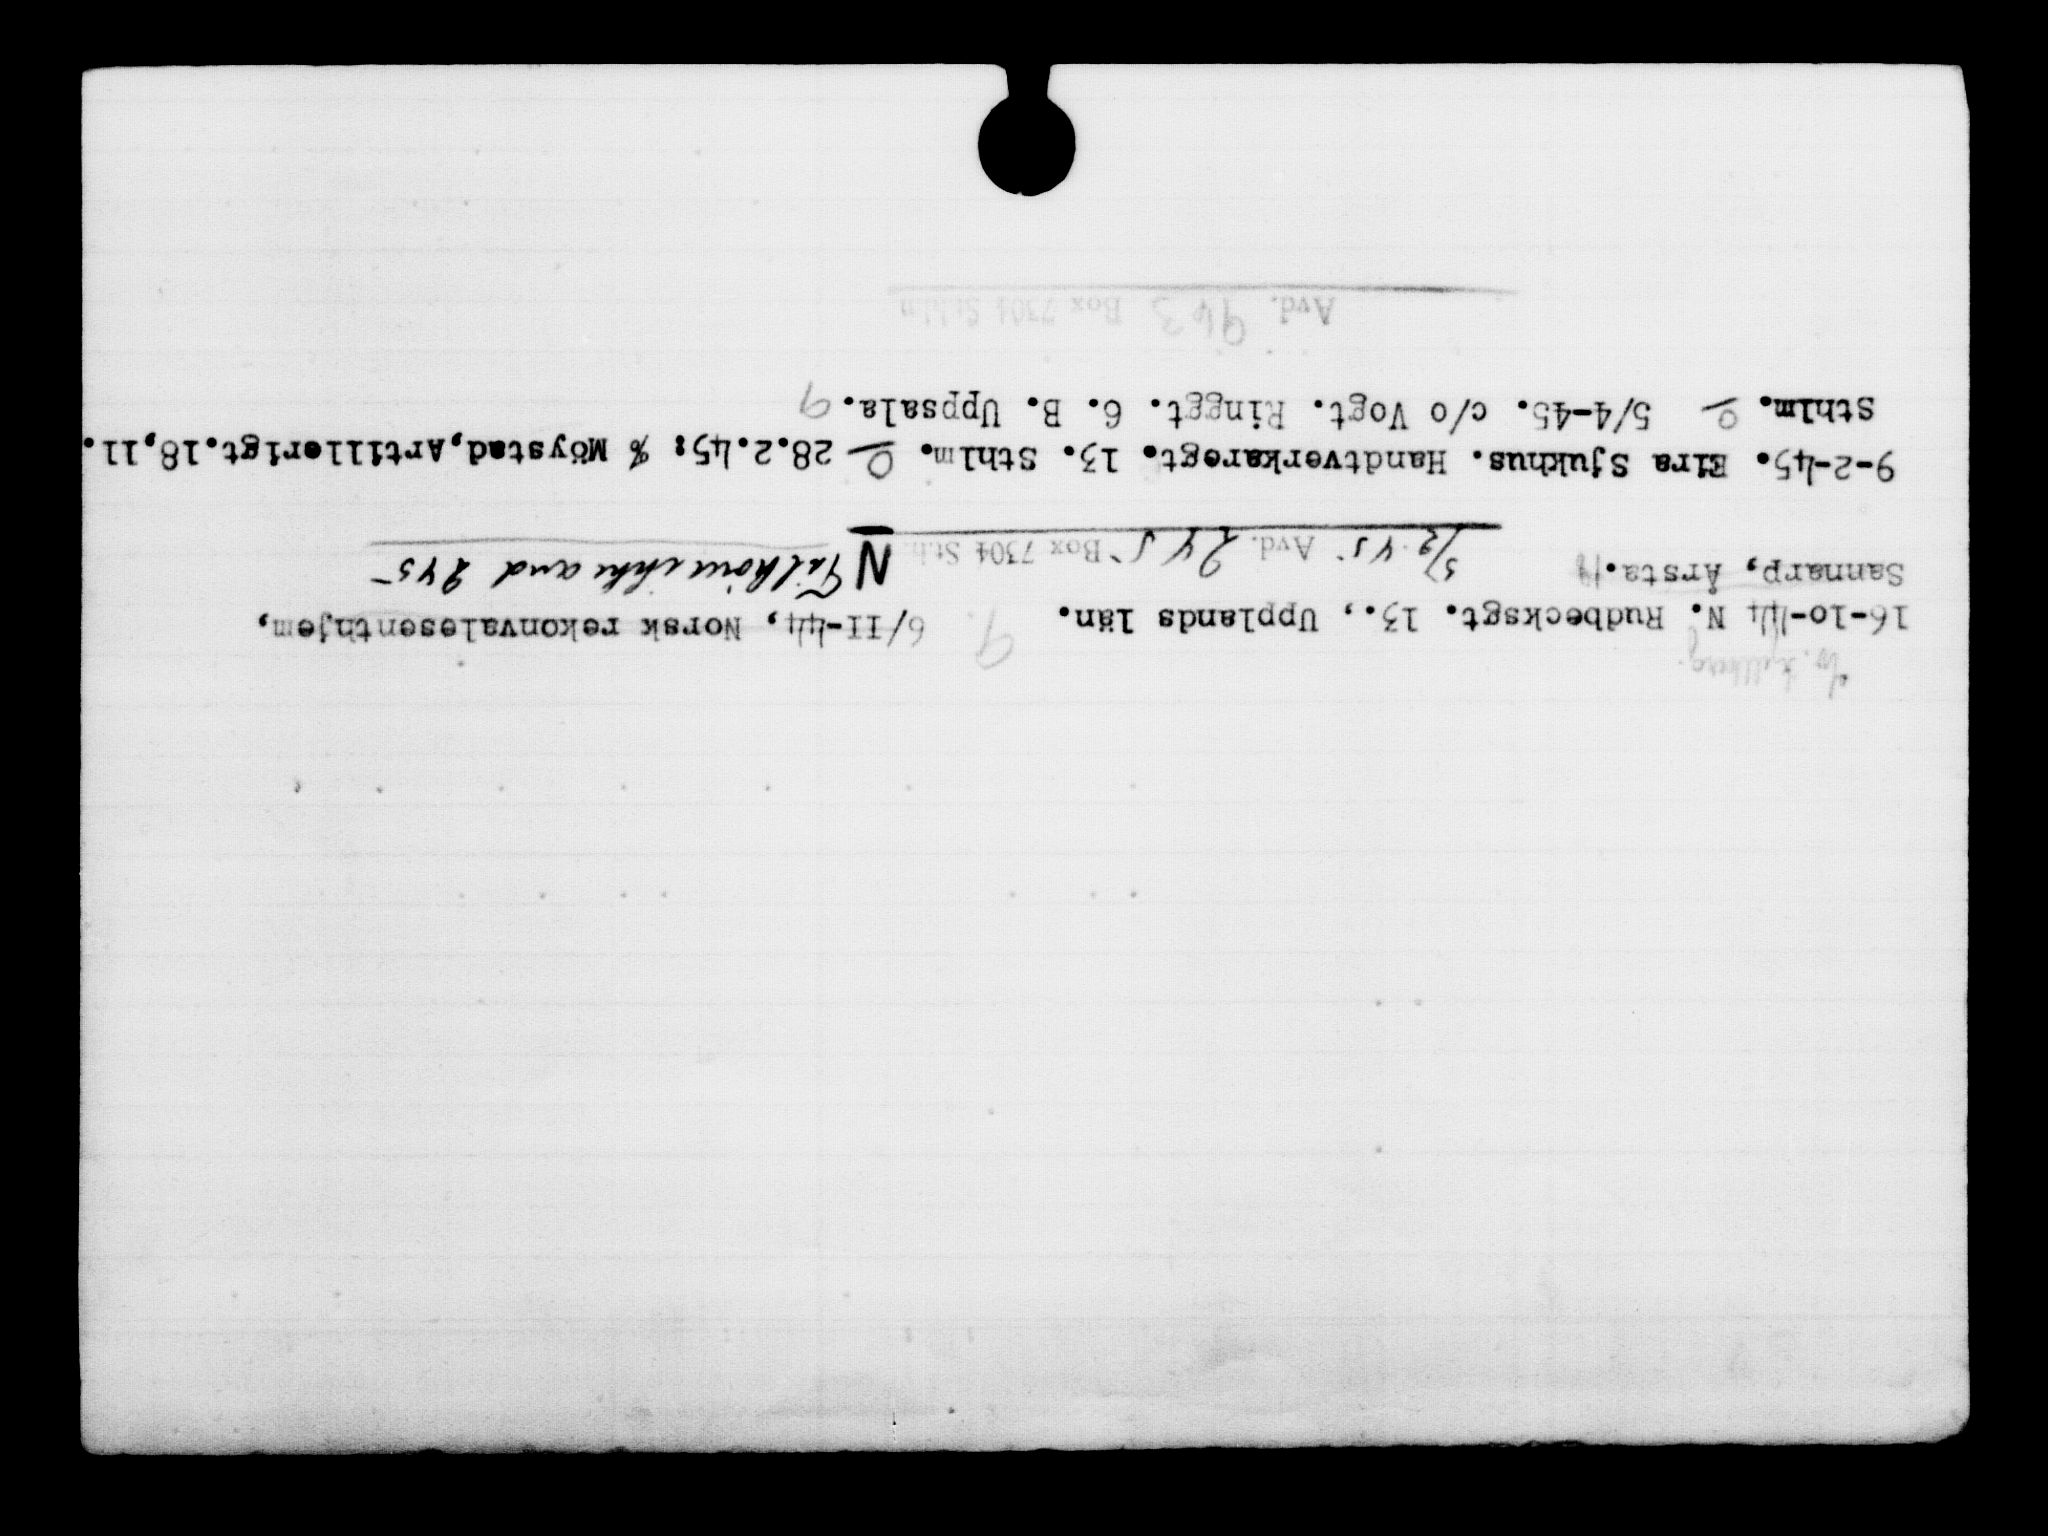 16-10-44 N. Rudbecksgt. 13., Upplands län. 9. 6/II-44, Norsk rekonvalesenthjem,
Sannarp, Årsta. 5/2.45 Avd. 245 Box 7304 Sth. N
9-2-45. Eira Sjukhus. Handtverkaregt. 13. Sthlm. 28.2.45: % Möystad, Artillerigt.18,11.
Sthlm. 5/4-45. c/o Vogt. Ringgt. 6. B. Uppsala. 9
Avd. 963 Box 7304 Sthlm